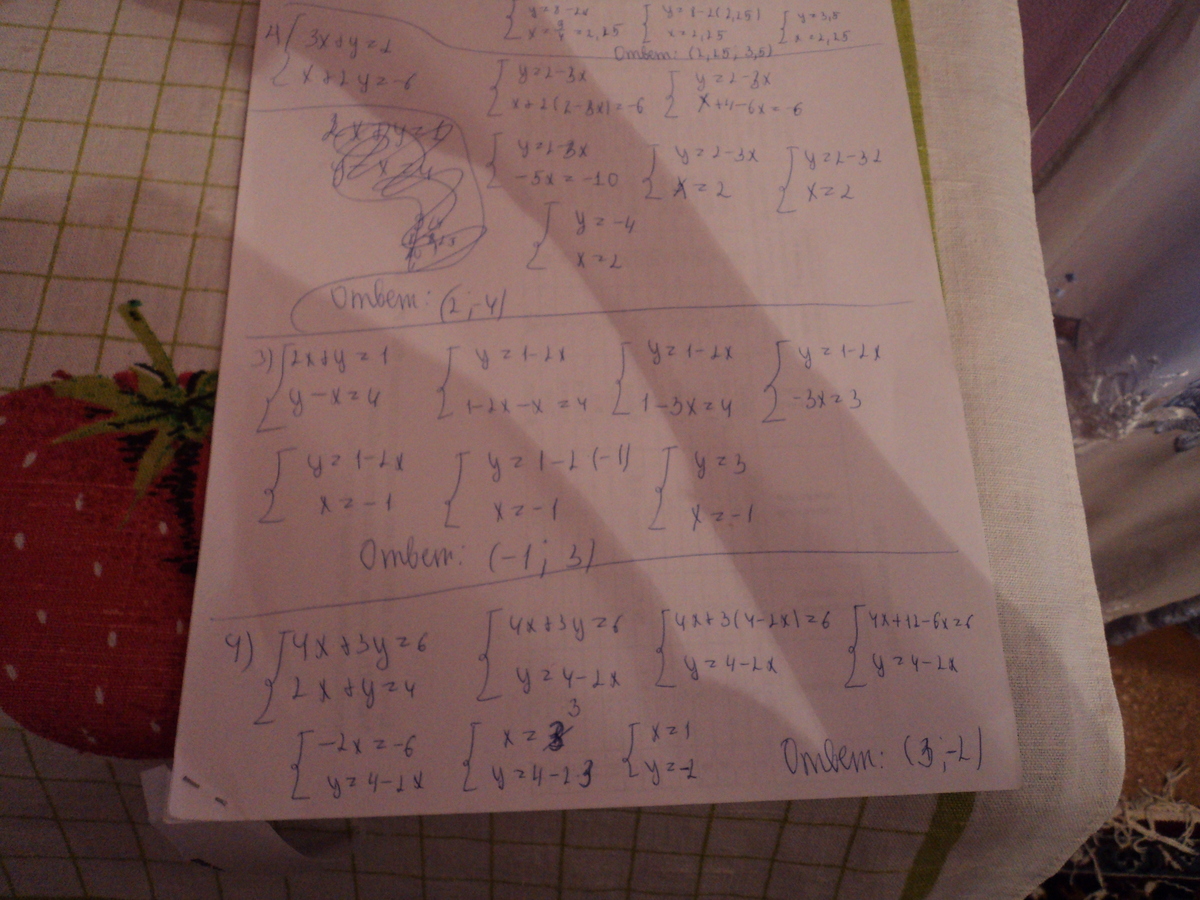 { y=8-2x
x=9/4=2,25 { y=8-2(2,25)
x=2,25 { y=3,5
x=2,25
Ответ: (2,25; 3,5)
2) { 3x+y=2
x+2y=-6 { y=2-3x
x+2(2-3x)=-6 { y=2-3x
x+4-6x=-6
{ y=2-3x
-5x=-10 { y=2-3x
x=2 { y=2-32
x=2
{ y=-4
x=2
Ответ: (2;-4)
3) { 2x+y=1
y-x=4 { y=1-2x
1-2x-x=4 { y=1-2x
1-3x=4 { y=1-2x
-3x=3
{ y=1-2x
x=-1 { y=1-2(-1)
x=-1 { y=3
x=-1
Ответ: (-1; 3)
4) { 4x+3y=6
2x+y=4 { 4x+3y=6
y=4-2x { 4x+3(4-2x)=6
y=4-2x { 4x+12-6x=6
y=4-2x
{ -2x=-6
y=4-2x { x=3
y=4-23 { x=1
y=-2 Ответ: (3;-2)